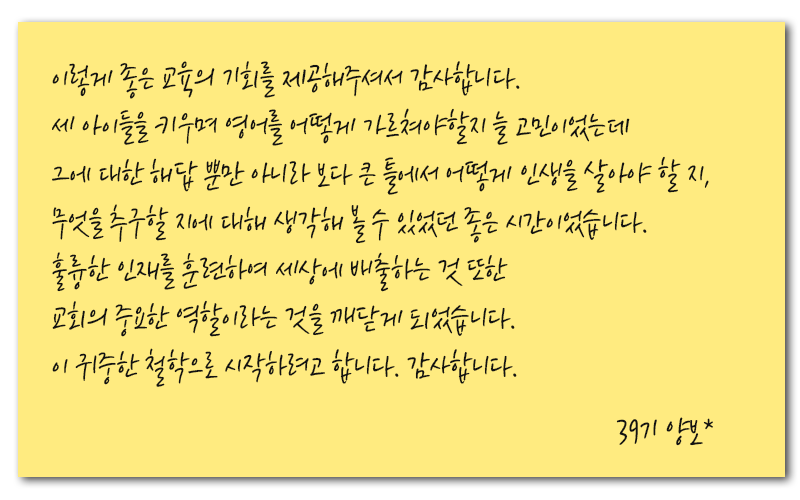 이렇게 좋은 교육의 기회를 제공해주셔서 감사합니다.
세 아이들을 키우며 영어를 어떻게 가르쳐야할지 늘 고민이었는데
그에 대한 해답 뿐만 아니라 보다 큰 틀에서 어떻게 인생을 살아야 할 지,
무엇을 추구할 지에 대해 생각해 볼 수 있었던 좋은 시간이었습니다.
훌륭한 인재를 훈련하여 세상에 배출하는 것 또한
교회의 중요한 역할이라는 것을 깨닫게 되었습니다.
이 귀중한 철학으로 시작하려고 합니다. 감사합니다.
39기 양보*